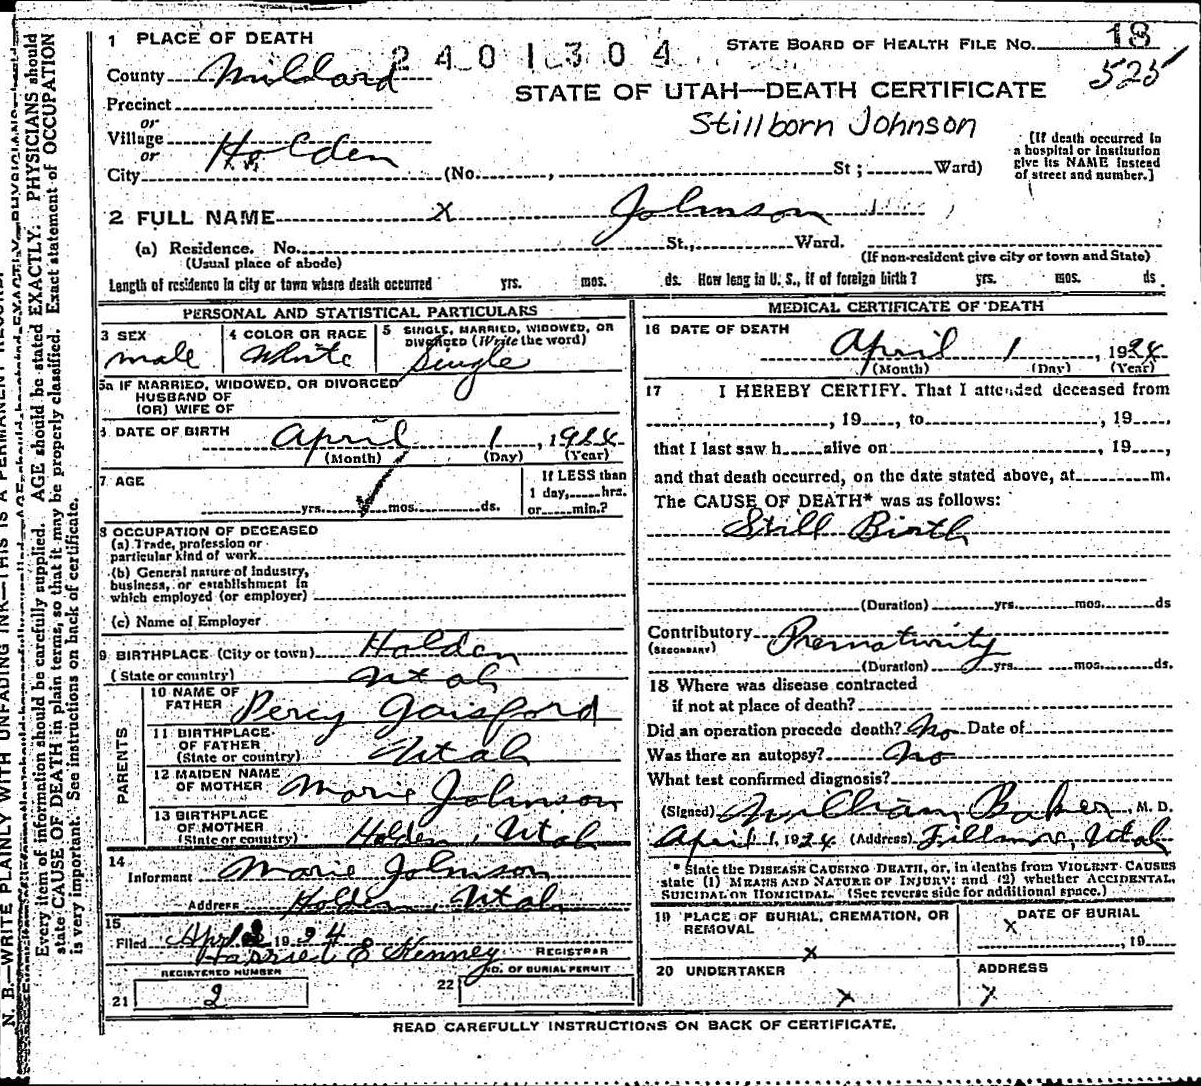 1 PLACE OF DEATH
2401304
STATE BOARD OF HEALTH FILE No. 18
525
County Millard
STATE OF UTAH—DEATH CERTIFICATE
Precinct
or
Stillborn Johnson
Village
or
Holden
City (No. , St; Ward)
[If death occurred in
a hospital or institution
give its NAME instead
of street and number.]
2 FULL NAME x Johnson
(a) Residence. No. St., Ward.
(Usual place of abode)
(If non-resident give city or town and State)
Length of residence in city or town where death occurred yrs. mos. ds. How long in U. S., if of foreign birth? yrs. mos. ds.
PERSONAL AND STATISTICAL PARTICULARS
3 SEX
male
4 COLOR OR RACE
White
5 SINGLE, MARRIED, WIDOWED, OR
DIVORCED (Write the word)
Single
5a IF MARRIED, WIDOWED, OR DIVORCED
HUSBAND OF
(OR) WIFE OF
6 DATE OF BIRTH April 1, 1924
(Month) (Day) (Year)
7 AGE
If LESS than
1 day, hrs.
yrs. mos. ds. or min.?
8 OCCUPATION OF DECEASED
(a) Trade, profession or
particular kind of work
(b) General nature of Industry,
business, or establishment in
which employed (or employer)
(c) Name of Employer
9 BIRTHPLACE (City or town) Holden
(State or country) Utah
PARENTS
10 NAME OF
FATHER Percy Gaisford
11 BIRTHPLACE
OF FATHER
(State or country) Utah
12 MAIDEN NAME
OF MOTHER Marie Johnson
13 BIRTHPLACE
OF MOTHER
(State or country) Holden, Utah
14
Informant Marie Johnson
Address Holden, Utah
15
Filed Apr 1924
Harriet E Kenney REGISTRAR
REGISTERED NUMBER
21 2
22 NO. OF BURIAL PERMIT
MEDICAL CERTIFICATE OF DEATH
16 DATE OF DEATH
April 1, 1924
(Month) (Day) (Year)
17 I HEREBY CERTIFY. That I attended deceased from
, 19 , to , 19 ,
that I last saw h alive on , 19 ,
and that death occurred, on the date stated above, at m.
The CAUSE OF DEATH* was as follows:
Still Birth
(Duration) yrs. mos. ds
Contributory Prematurity
(SECONDARY)
(Duration) yrs. mos. ds.
18 Where was disease contracted
if not at place of death?
Did an operation precede death? No Date of
Was there an autopsy? No
What test confirmed diagnosis?
(Signed) Baker, M. D.
April 1, 1924 (Address) Fillmore, Utah
* State the DISEASE CAUSING DEATH, or, in deaths from VIOLENT CAUSES
state (1) MEANS AND NATURE OF INJURY; and (2) whether ACCIDENTAL,
SUICIDAL OR HOMICIDAL (See reverse side for additional space.)
19 PLACE OF BURIAL, CREMATION, OR
REMOVAL
x
DATE OF BURIAL
x
, 19
20 UNDERTAKER
x
ADDRESS
x
READ CAREFULLY INSTRUCTIONS ON BACK OF CERTIFICATE.
N. B.—WRITE PLAINLY WITH UNFADING INK—THIS IS A PERMANENT RECORD.
Every item of information should be carefully supplied. AGE should be stated EXACTLY. PHYSICIANS should
state CAUSE OF DEATH in plain terms, so that it may be properly classified. Exact statement of OCCUPATION
is very important. See instructions on back of certificate.